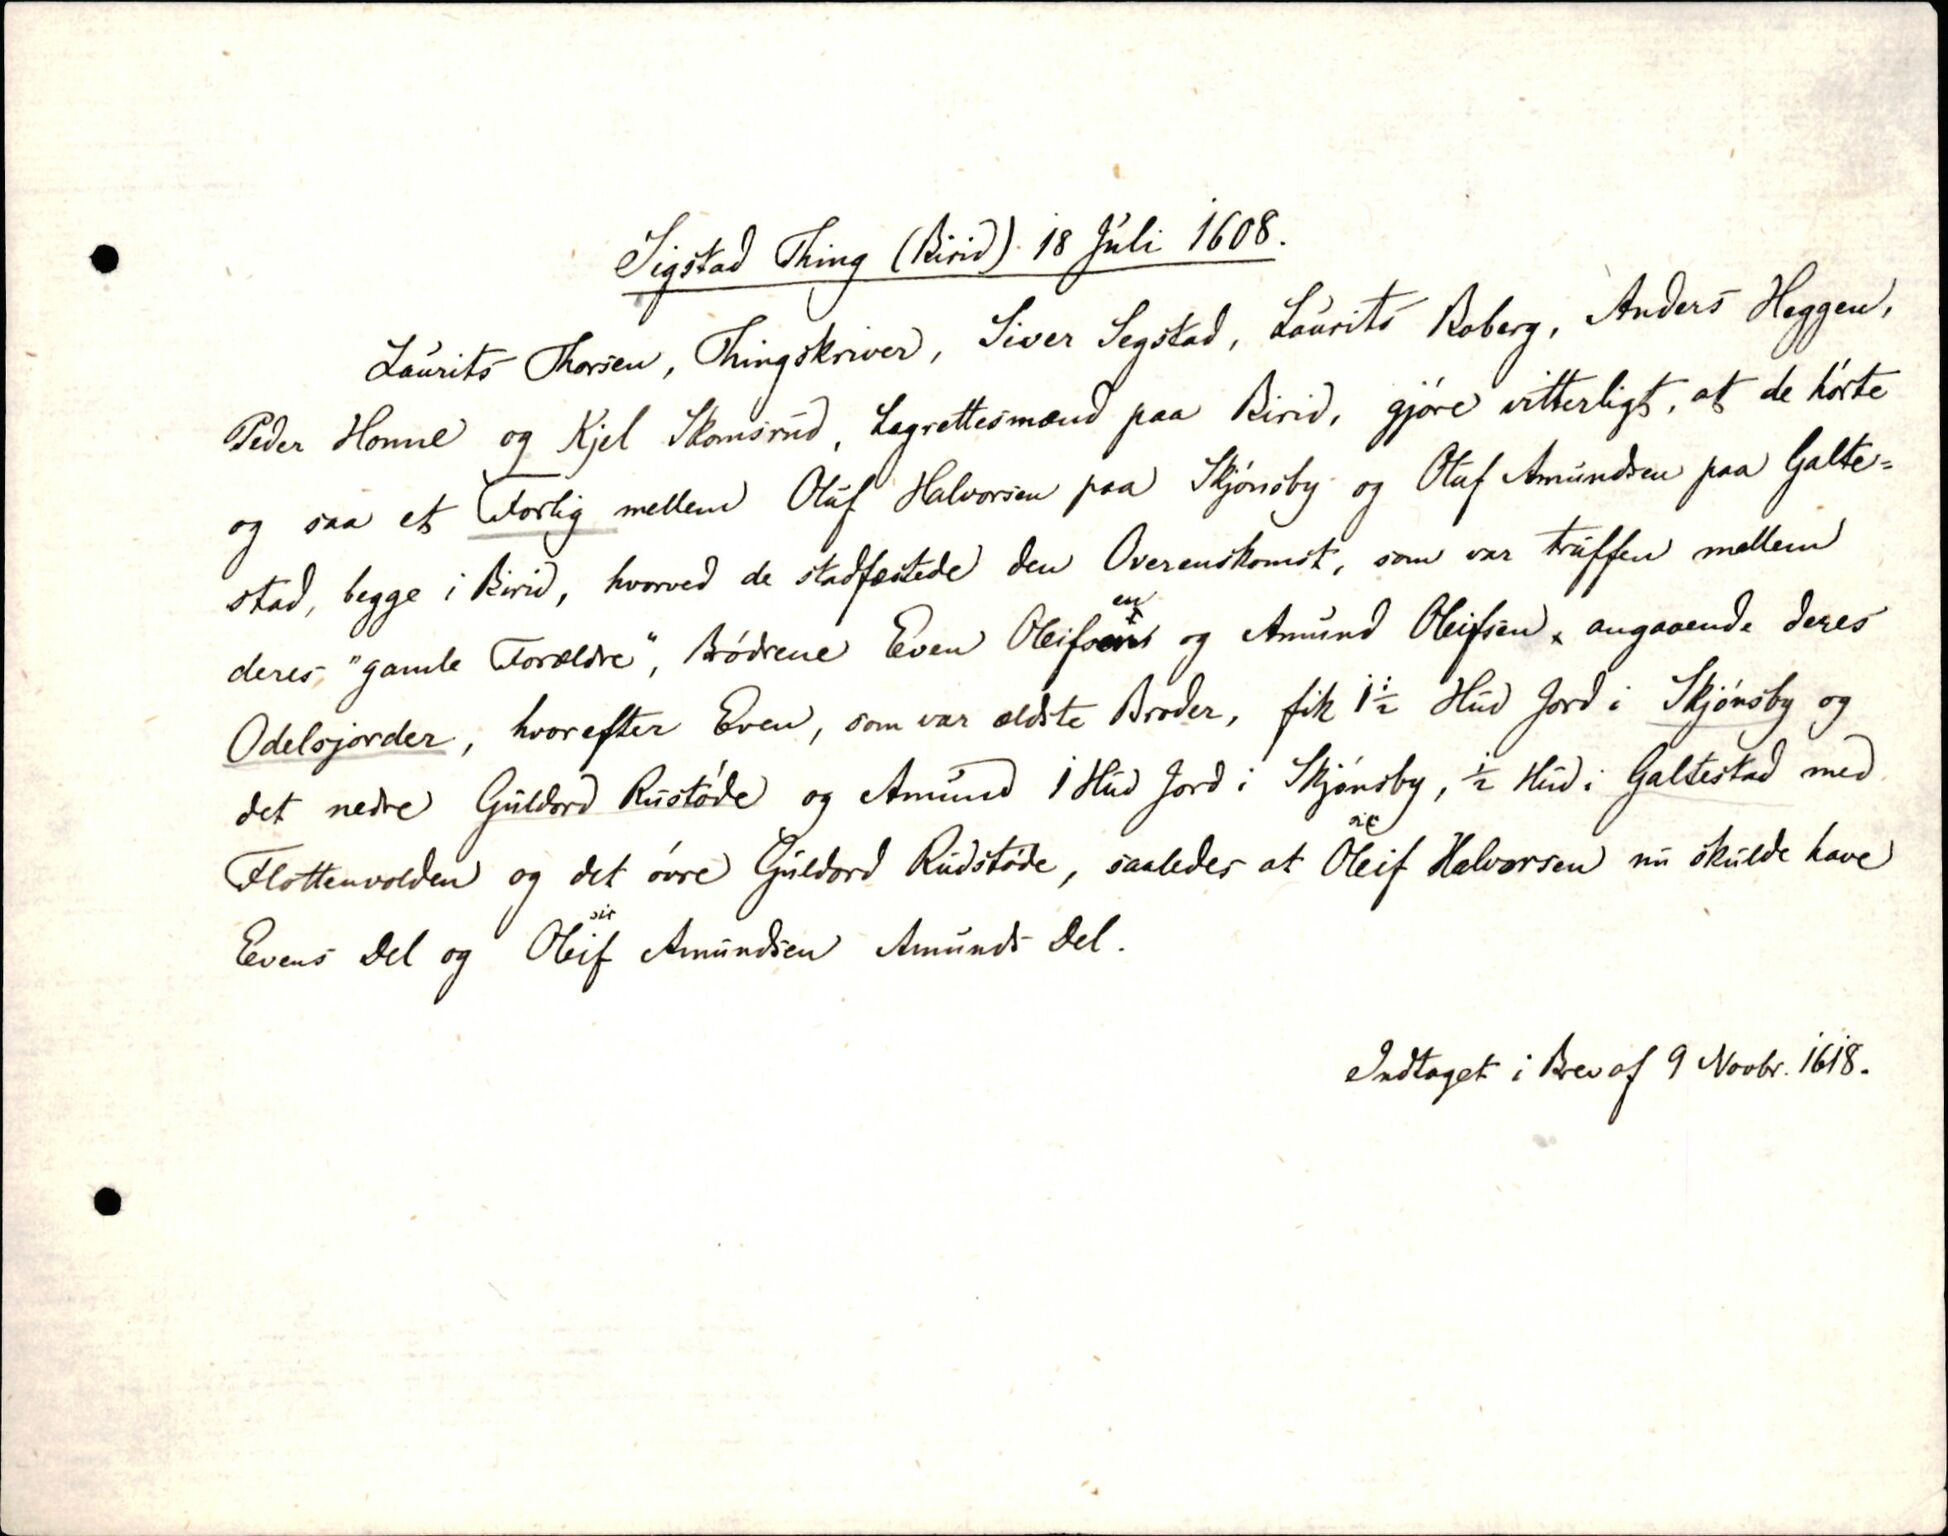 Sigstad Thing (Birid) 18 Juli 1608.
Laurits Thorsen, Thingskriver, Siver Segstad, Laurits Roberg, Anders Heggen,
Peder Honne og Kjel Skomsrud, Lagrettesmænd paa Birid, gjöre vitterligt, at de hörte
og saa et Forlig mellem Oluf Halvorsen paa Skjönsby og Oluf Amundsen paa Galte=
stad, begge i Birid, hvorved de stadfæstede den Overenskomst, som var truffen mellem
deres "gamle Forældre", Brödrene Even Oleifsen og Amund Oleifsen, angaaende deres
Odelsjorder, hvorefter Even, som var ældste Broder, fik 1½ Hud Jord i Skjönsby og
det nedre Guldord Rustöde og Amund 1 Hud Jord i Skjönsby, ½ Hud i Galtestad med
Flottenvolden og det övre Guldord Rudstöde, saaledes at Oleif (sic) Halvorsen nu skulde have
Evens Del og Oleif (sic) Amundsen Amunds Del.
Indtaget i Brev af 9 Novbr. 1618.